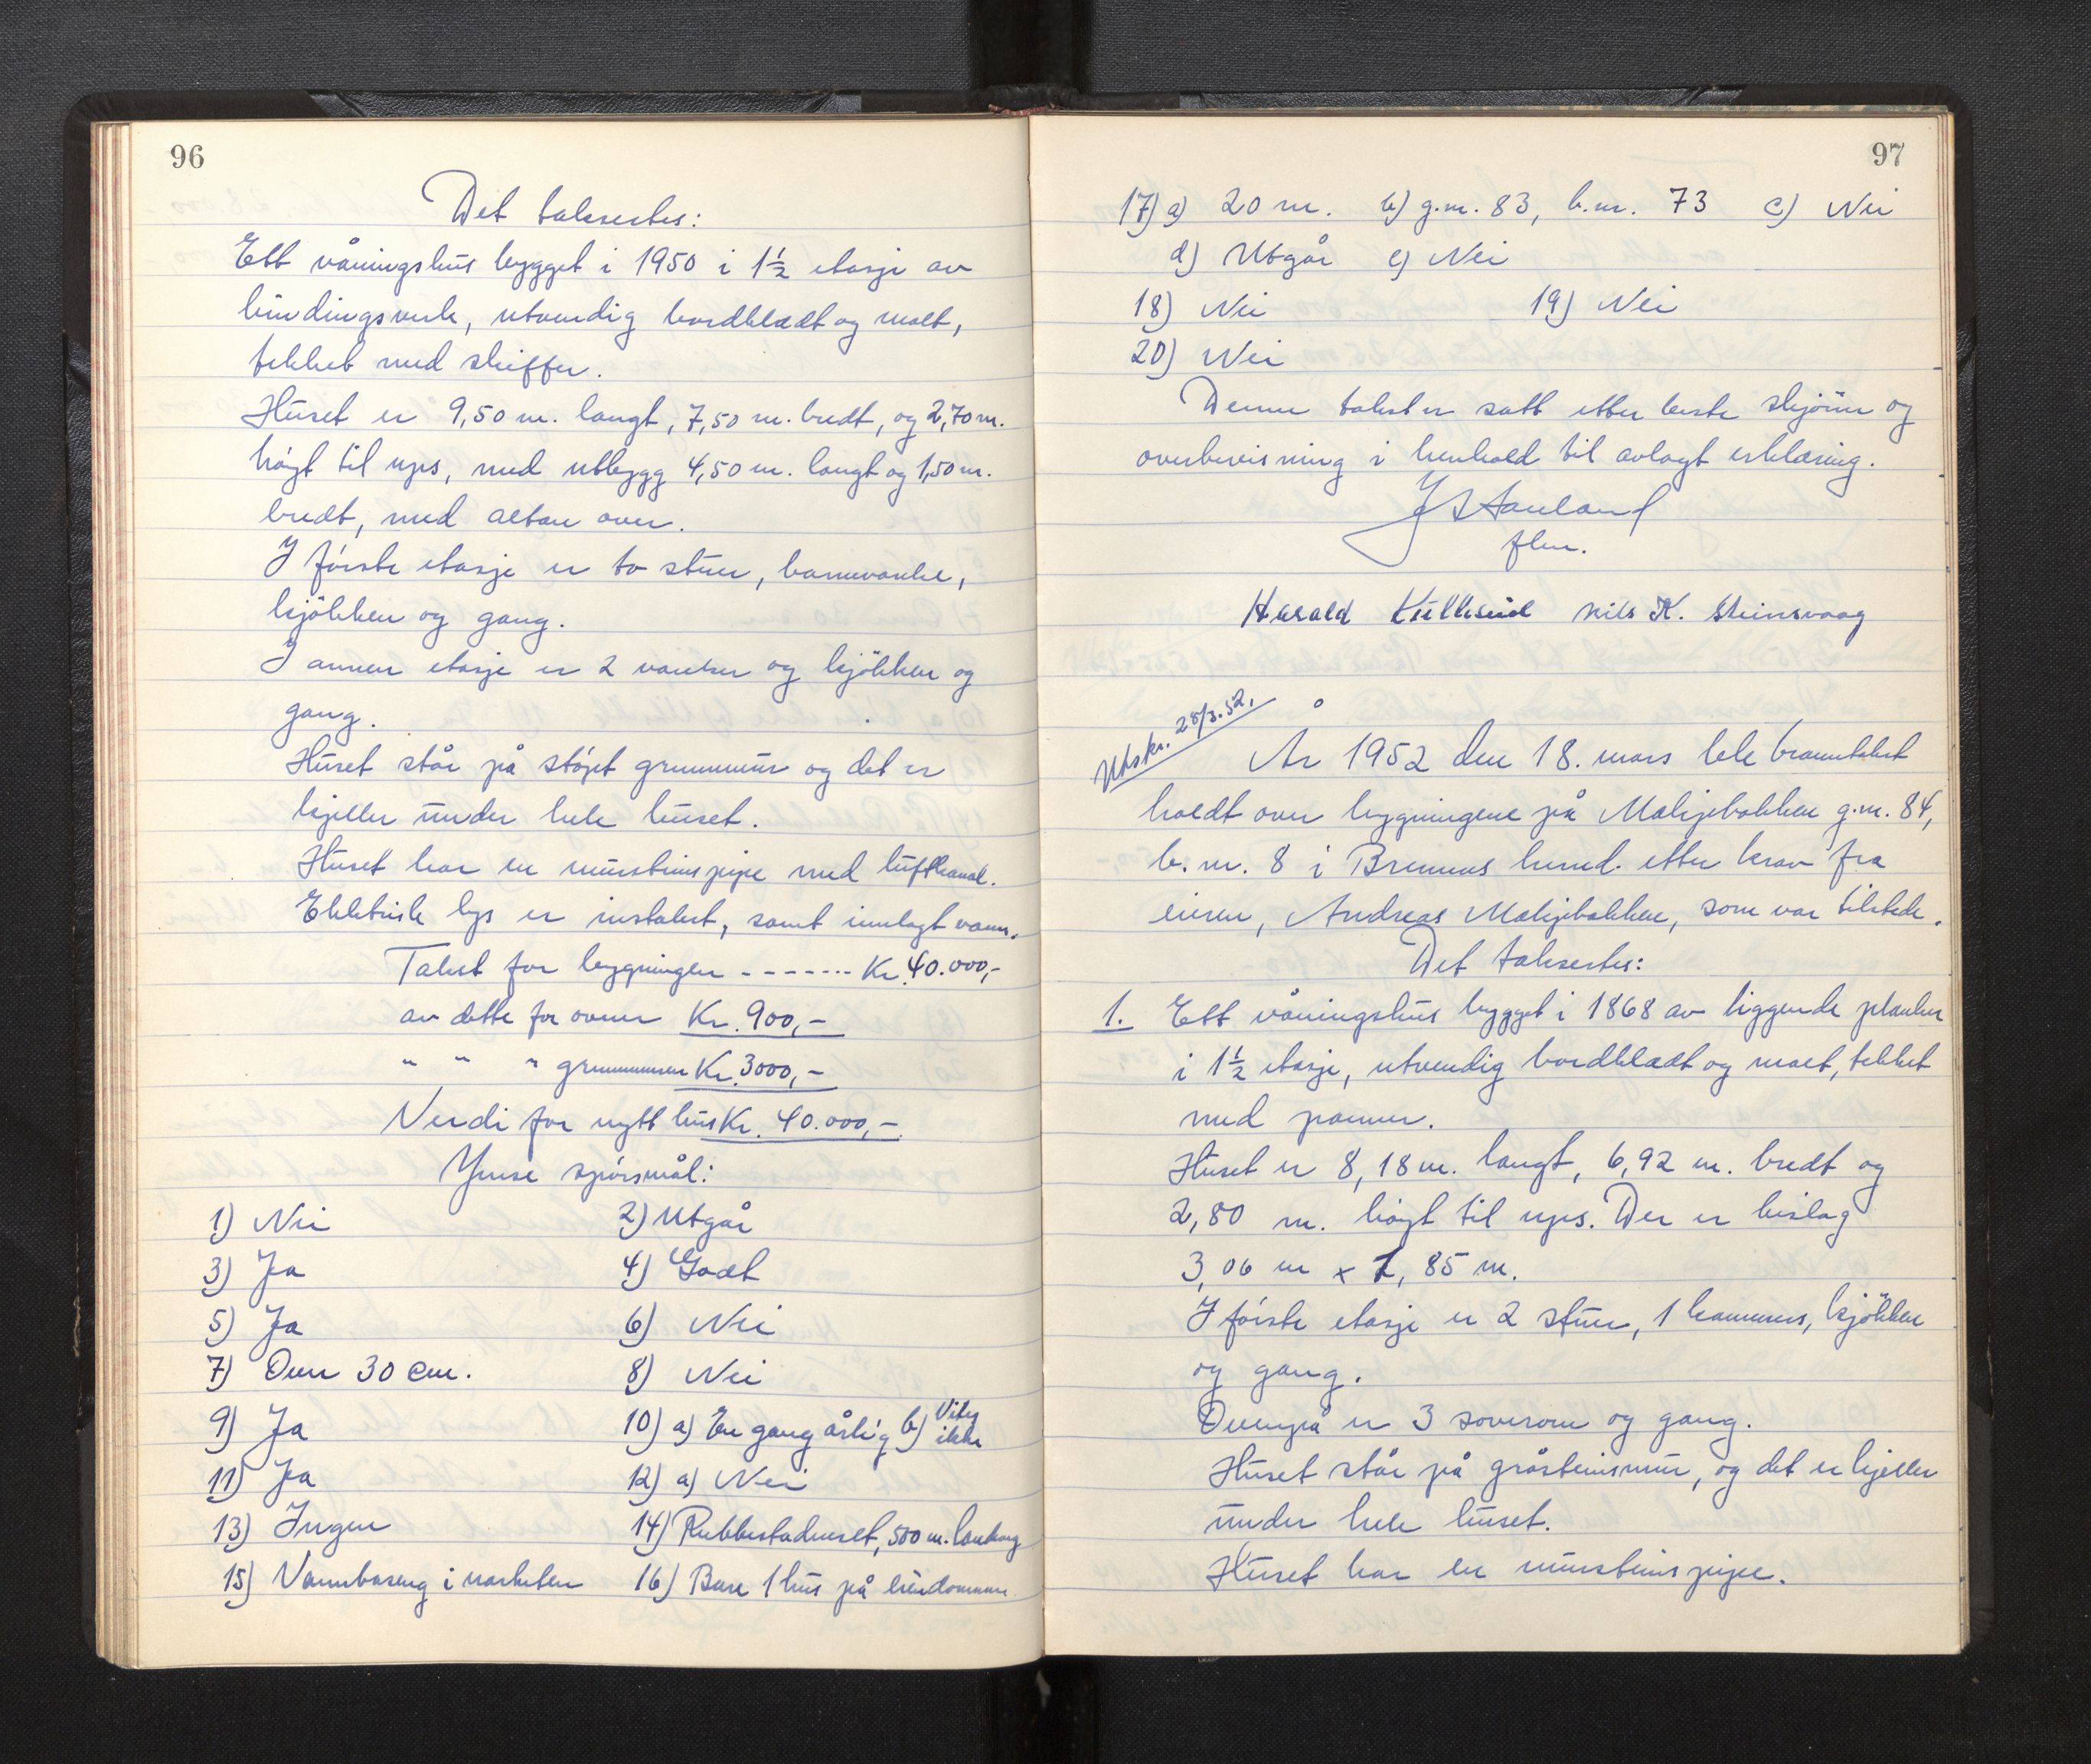 96
Det taksertes:
Ett våningshus bygget i 1950 i 1½ etasje av
bindingsverk, utvendig bordkledt og malt,
tekket med skiffer.
Huset er 9,50 m. langt, 7,50 m. bredt, og 2,70 m.
høgt til ups, med utbygg 4,50 m. langt og 1,50 m.
bredt, med altan over.
I første etasje er to stuer, barnevarelse,
kjøkken og gang.
I annen etasje er 2 værelser og kjøkken og
gang.
Huset står på støpt grunnmur og det er
kjeller under hele huset.
Huset har en mursteinspipe med luftkanal.
Elektrisk lys er instalert, samt innlagt vann.
Takst for bygningen - - - - - - - Kr. 40.000,-
av dette for ovner Kr. 900,-
" " " grunnmuren Kr. 3000,-
Verdi for nytt hus Kr. 40.000,-
Ymse spørsmål:
1) Nei 2) Utgår
3) Ja 4) Godt
5) Ja 6) Nei
7) Over 30 cm. 8) Nei
9) Ja 10) a) En gang årlig b) Vites ikke
11) Ja 12) a) Nei
13) Ingen 14) Rubbestadneset, 500 m. landveg
15) Vannbaseng i nærheten 16) Bare 1 hus på eiendommen
97
17) a) 20 m. b) g.nr. 83, b.nr. 73 c) Nei
d) Utgår e) Nei
18) Nei 19) Nei
20) Nei
Denne takst er satt etter beste skjønn og
overbevisning i henhold til avlagt erklæring.
flm.
Harald Nils K. Steinsvaag
Utskr. 28/3.52.
År 1952 den 18. mars ble branntakst
holdt over bygningene på Mælijebakken g.nr. 84,
b.nr. 8 i Bremnes herred. etter krav fra
eieren, Andreas Mælijebakken, som var tilstede.
Det taksertes:
1. Ett våningshus bygget i 1868 av liggende planker
i 1½ etasje, utvendig bordkledt og malt, tekket
med panner.
Huset er 8,18 m. langt, 6,92 m. bredt og
2,80 m. høgt til ups. Der er bislag
3,06 m x 1,85 m.
I første etasje er 2 stuer, 1 kammers, kjøkken
og gang.
Ovenpå er 3 soverom og gang.
Huset står på gråsteinsmur, og det er kjeller
under hele huset.
Huset har en mursteinspipe.